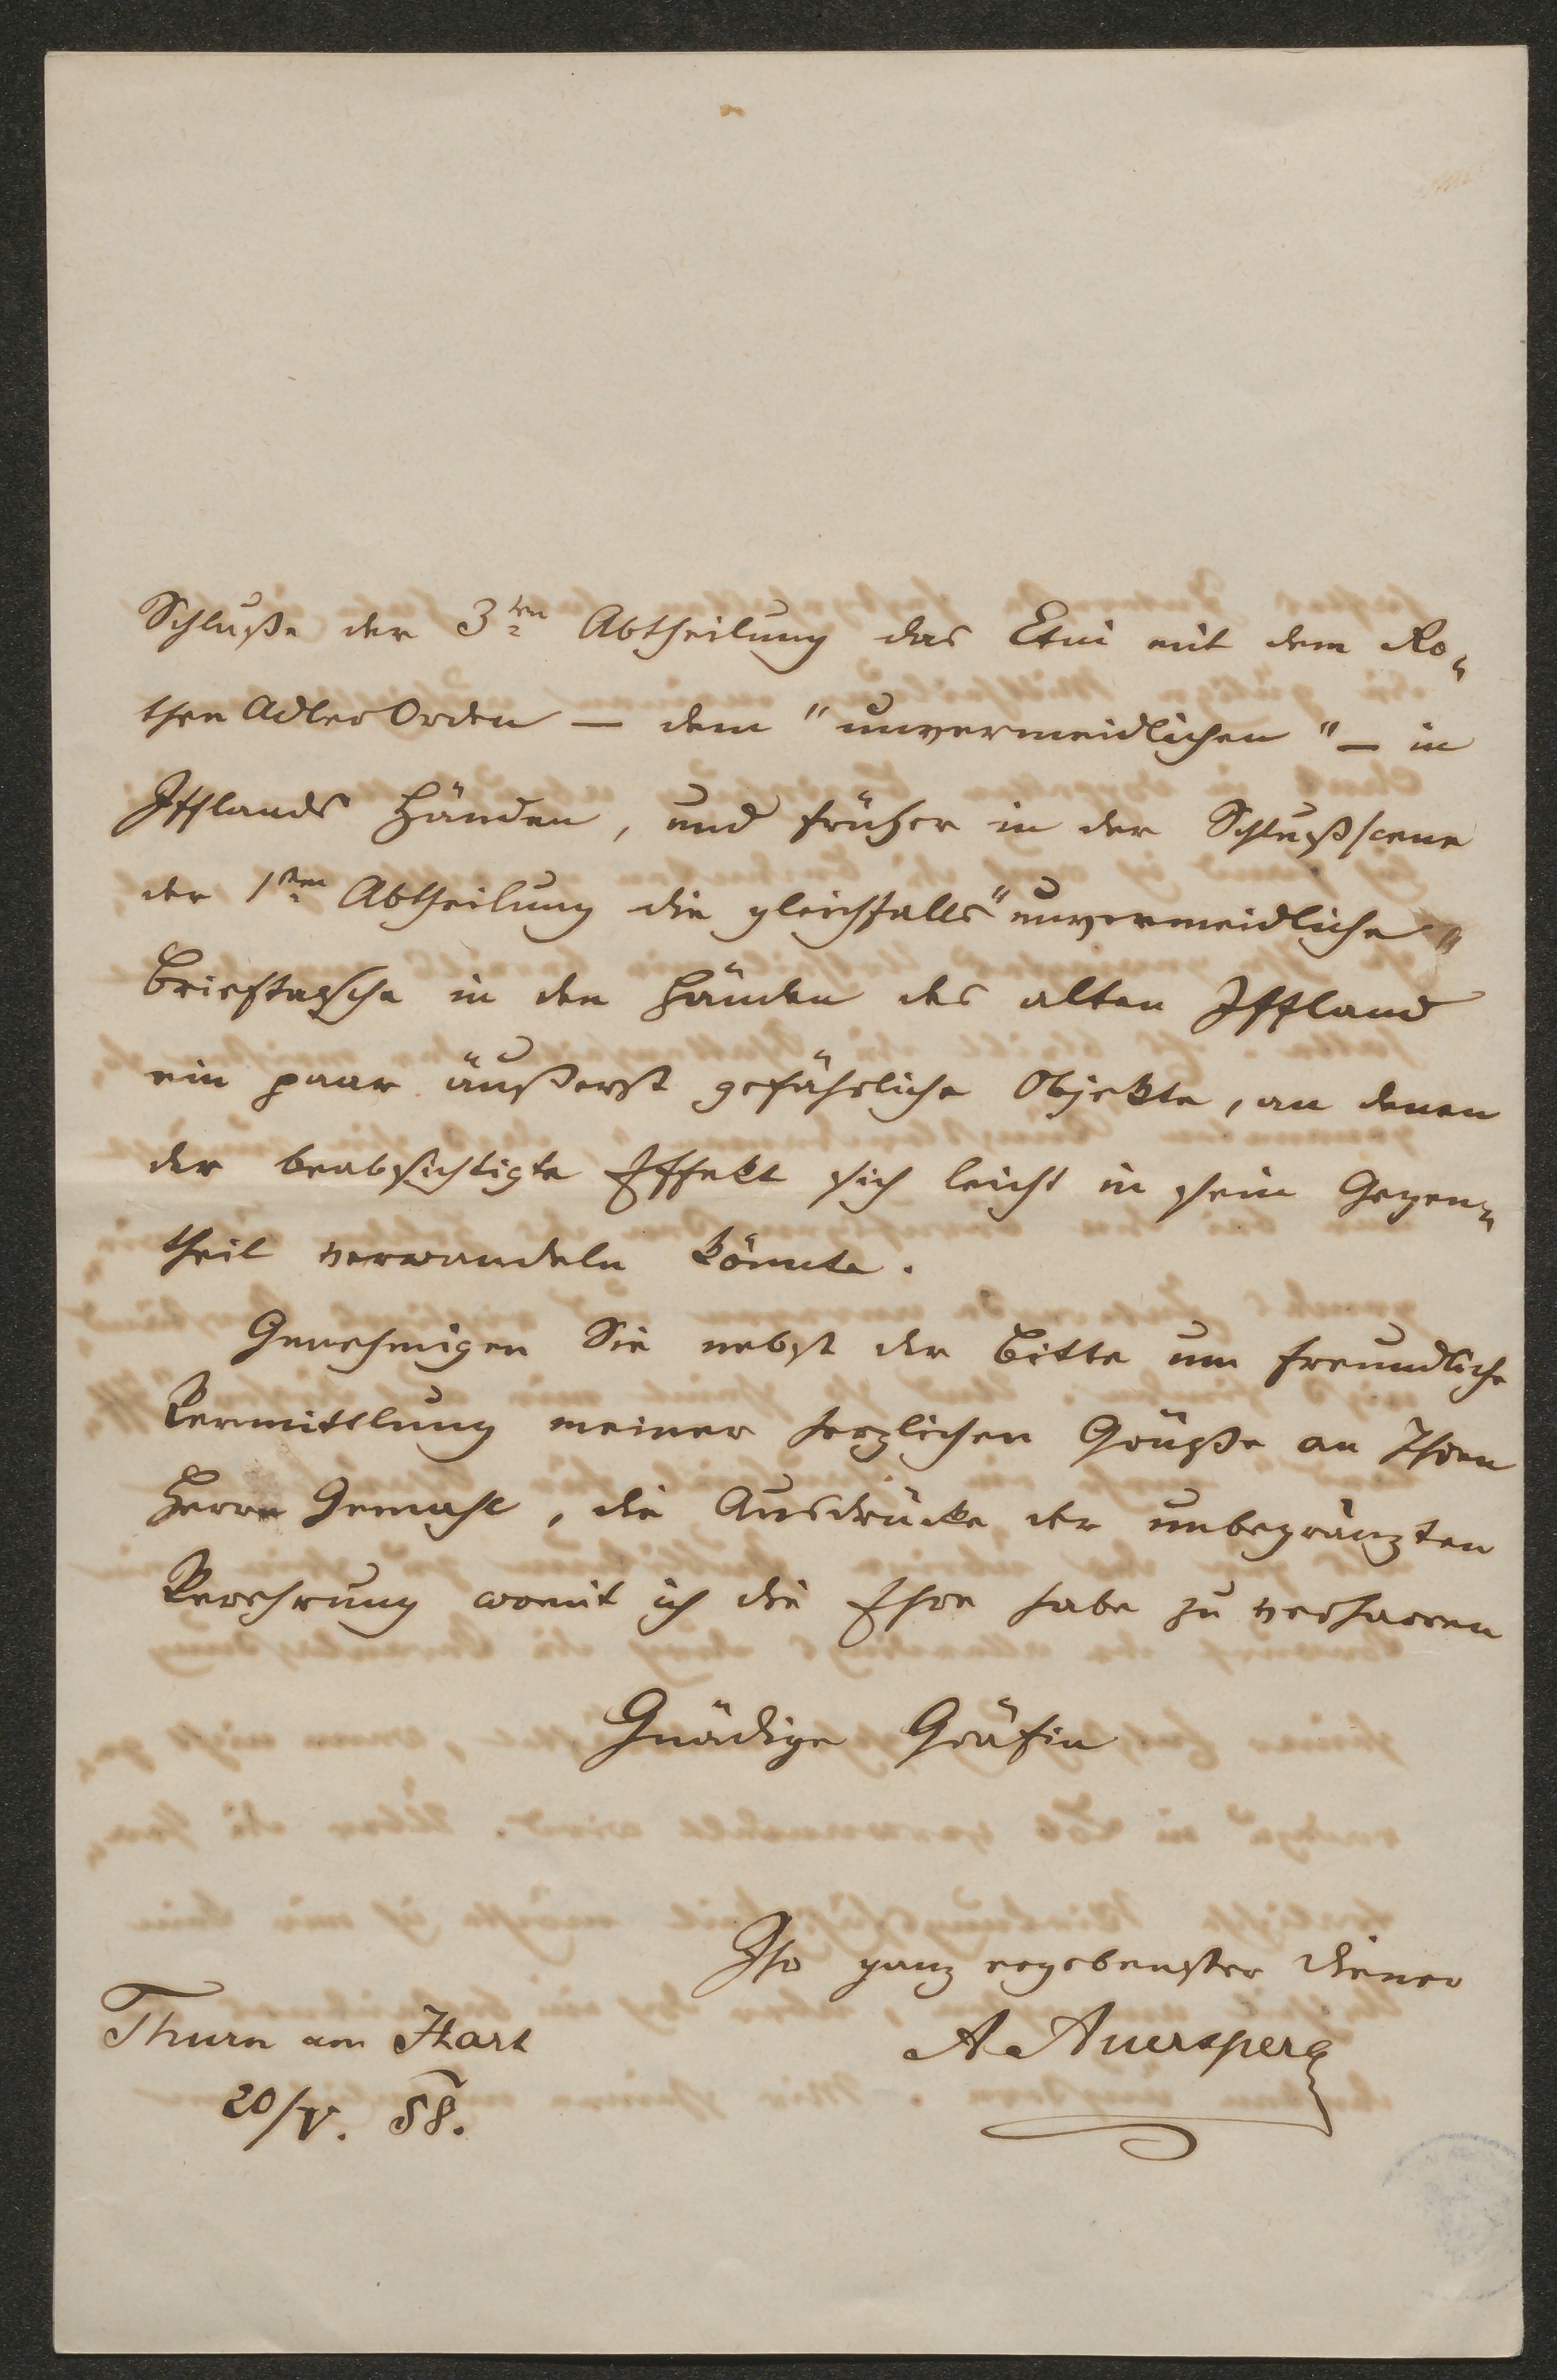 Schluße der 3ten Abtheilung das Etui mit dem Ro„
then Adler Orden — dem "unvermeidlichen" — in
Ifflands Händen, und früher in der Schlußscene
der 1ten Abtheilung die gleichfalls "unvermeidliche"
Brieftasche in den Händen des alten Iffland
ein paar äußerst gefährliche Objekte, an denen
der beabsichtigte Effekt sich leicht in sein Gegen„
theil verwandeln könnte.
Genehmigen Sie nebst der Bitte um freundliche
Vermittlung meiner herzlichen Grüße an Ihren
Herrn Gemahl, die Ausdrücke der unbegränzten
Verehrung womit ich die Ehre habe zu verharren
Gnädige Gräfin
Ihr ganz ergebenster Diener
A. Auersperg
Thurn am Hart
20/V. 58.